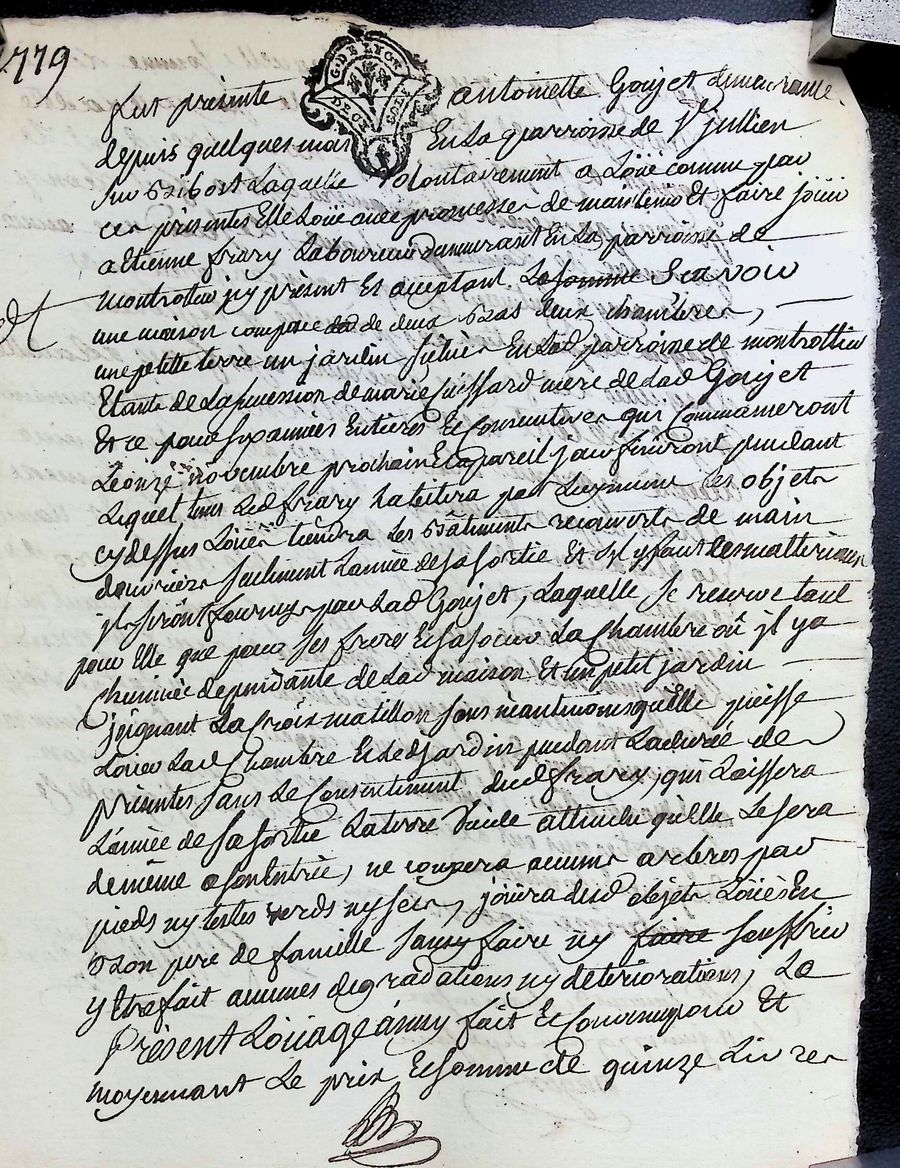 1779
G. DE LYON
fut présente antoinette Goujet demeurante
depuis quelques mois En La parroisse de St jullien
sur Bibost Laquelle volontairement a Loüé comme par
ces présentes Elle Loüe avec promesse de maintenir Et faire joüir
a Etienne frary Laboureur demeurant En La parroisse de
montrottier jcy présent Et acceptant La somme Scavoir
une maison composée de deux bas deux chambres,
une petitte terre un jardin situés En Lad parroisse de montrottier
Etants de La succession de marie suiffard mere de Lad Goujet
Et ce pour six années Entieres Et Consecutives qui Commanceront
Le onze novembre prochain Et a pareil jour finiront pendant
Lequel tems Led frary habitera par Luy mème Les objets
cy dessus Loüés tiendra Les Bâtiments recouverts de main
d'ouvriers seulment L'année de sa sortie Et s'jl y faut des matteriaux
jls seront fournys par Lad Goujet, Laquelle se reserve tant
pour Elle que pour ses freres Et sa soeur La Chambre oû jl y a
Cheminée dependante de Lad maison Et un petit jardin
joignant La Croix matillon sans néantmoins qu'Elle puisse
Loüer Lad Chambre Et Led jardin pendant La durée des
présentes sans Le Consentement dud frary, qui Laissera
L'année de sa sortie La terre vuide attendu qu'Elle Le sera
de mème a son Entrée, ne coupera aucuns arbres par
pieds ny testes verds ny secs, joüira desd objets Loüés En
Bon pere de famille sans y faire ny faire souffrir
y Etre fait aucunes degradations ny déteriorations, Le
Présent Loüage ainsy fait Et Convenu pour Et
moyennant Le prix Et somme de quinze Livres